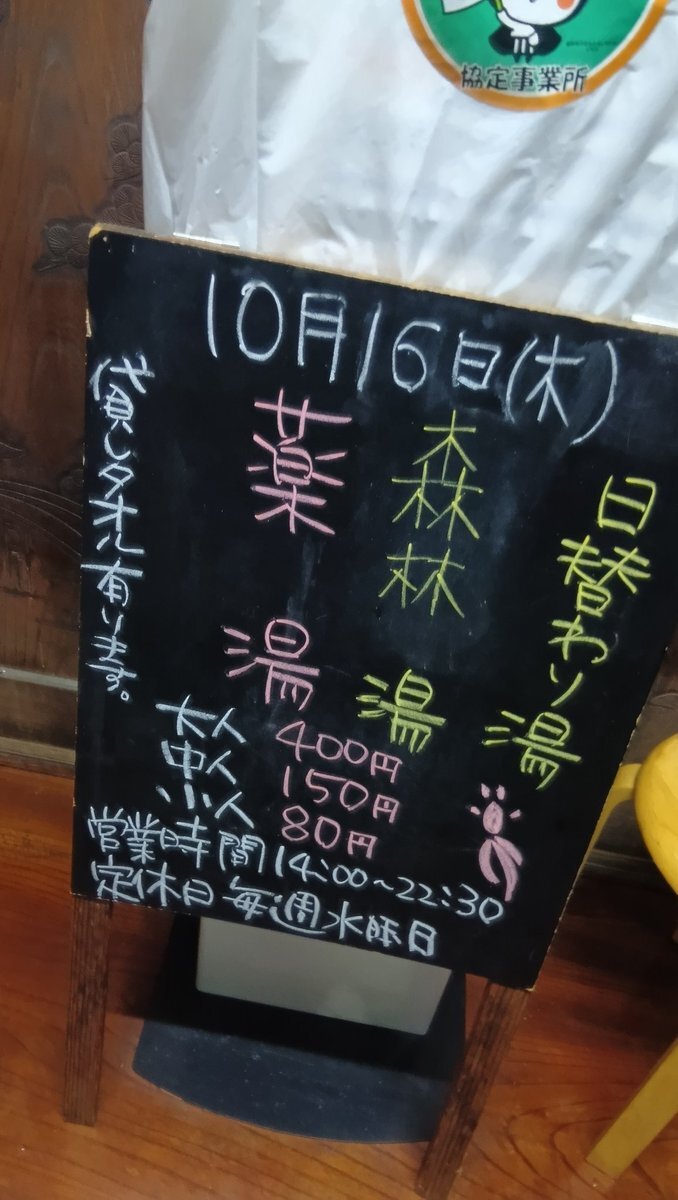 協定事業所
10月16日(木)
日替わり湯
森林湯
薬湯
貸しタオル有ります。
大人 400円
中人 150円
小人 80円
営業時間 14:00~22:30
定休日 毎週水曜日